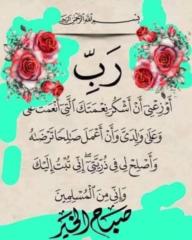 بسم الله الرحمن الرحيم
رَبِّ
أَوْزِعْنِي أَنْ أَشْكُرَ نِعْمَتَكَ الَّتِي أَنْعَمْتَ عَلَيَّ
وَعَلَى وَالِدَيَّ وَأَنْ أَعْمَلَ صَالِحًا تَرْضَاهُ
وَأَصْلِحْ لِي فِي ذُرِّيَّتِي إِنِّي تُبْتُ إِلَيْكَ
وَإِنِّي مِنَ الْمُسْلِمِينَ
صباح الخير